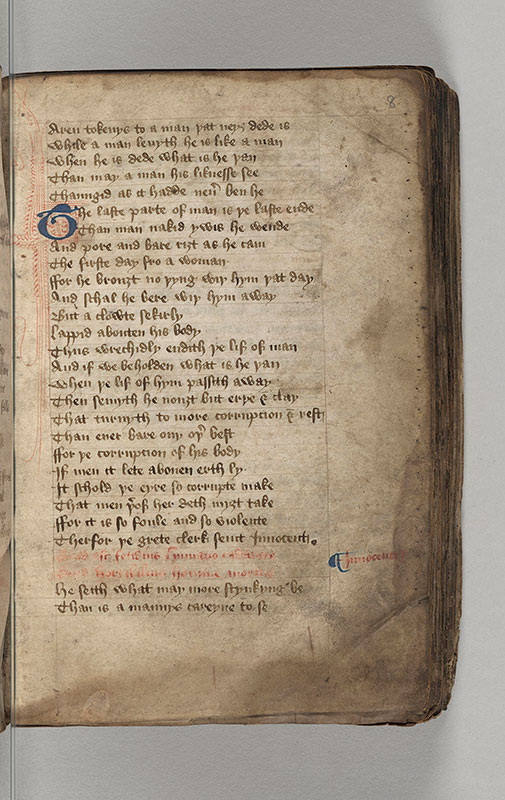 Aren tokenys to a man þat neyȝ dede is
While a man leuyth he is like a man
When he is dede what is he þan
Than may a man his liknesse see
Chaungid as it hadde neuͬ ben he
The laste parte of man is þe laste ende
Than man nakid ywis he wende
And pore and bare riȝt as he cam
The firste day fro a woman
ffor he brouȝt no þyng wiþ hym þat day
And schal he bere wiþ hym away
But a clowte sekirly
Lappid abouten his body
Thus wrechidly endith þe lif of man
And if we beholden what is he þan
When þe lif of hym passith away
Then semyth he nouȝt but erþe & clay
That turnyth to more corrupcion & rest
Than euer bare ony oþͬ best
ffor þe corrupcion of his body
If men it lete abouen erth ly
It schold þe eyre so corrupte make
That men þͬof her deth myȝt take
ffor it is so foule and so violente
Therfor þe grete clerk seint Innocent
humano
homine
He seith what may more stynkyng be
Than is a mannys careyne to se
Innocent
8